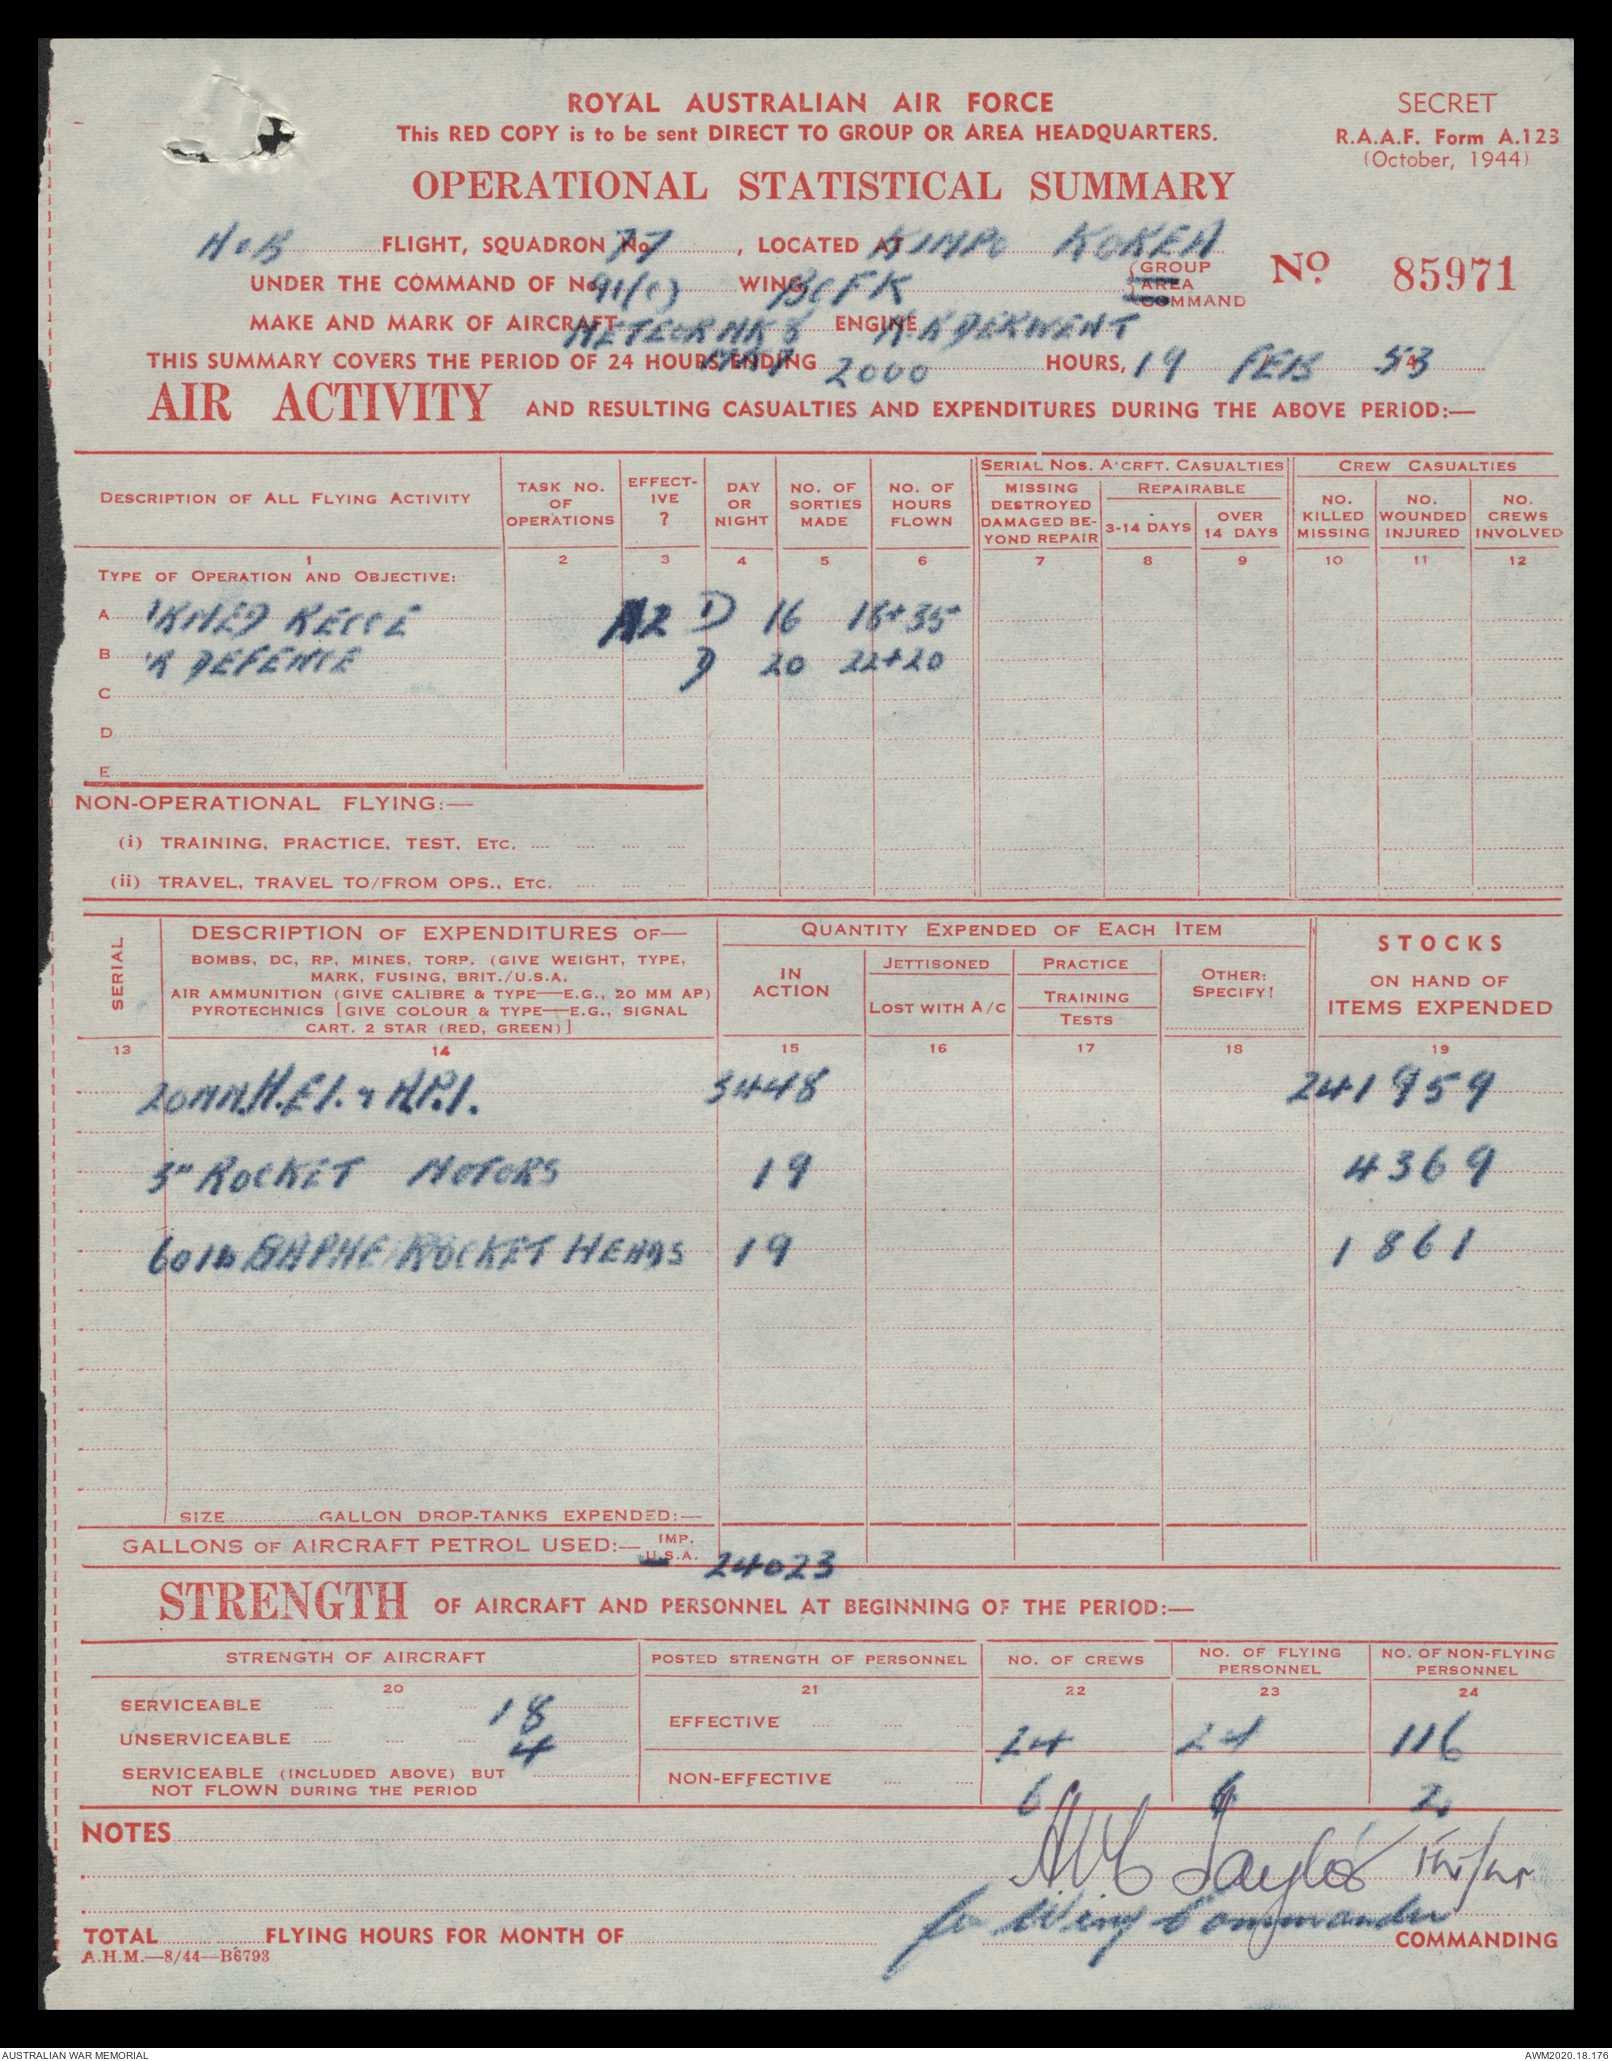 ROYAL AUSTRALIAN AIR FORCE
This RED COPY is to be sent DIRECT TO GROUP OR AREA HEADQUARTERS.
SECRET
R.A.A.F. Form A.123
(October, 1944)
OPERATIONAL STATISTICAL SUMMARY
FLIGHT, SQUADRON No. 77, LOCATED AT KIMPO KOREA
UNDER THE COMMAND OF No. 91(C) WING, (GROUP AREA COMMAND
No. 85971
MAKE AND MARK OF AIRCRAFT METEOR MK 8 ENGINE R.R DERWENT
THIS SUMMARY COVERS THE PERIOD OF 24 HOURS ENDING 2000 HOURS, 19 FEB 53
AIR ACTIVITY AND RESULTING CASUALTIES AND EXPENDITURES DURING THE ABOVE PERIOD:—
DESCRIPTION OF ALL FLYING ACTIVITY
TASK NO. OF OPERATIONS
EFFECTIVE ?
DAY OR NIGHT
NO. OF SORTIES MADE
NO. OF HOURS FLOWN
SERIAL NOS. A'CRFT. CASUALTIES
MISSING DESTROYED DAMAGED BEYOND REPAIR
REPAIRABLE
3-14 DAYS
OVER 14 DAYS
CREW CASUALTIES
NO. KILLED MISSING
NO. WOUNDED INJURED
NO. CREWS INVOLVED
1 2 3 4 5 6 7 8 9 10 11 12
TYPE OF OPERATION AND OBJECTIVE:
A 'RMED RECCE D 16 16+35
B 'R DEFENCE D 20 22+20
C
D
E
NON-OPERATIONAL FLYING:—
(i) TRAINING, PRACTICE, TEST, ETC.
(ii) TRAVEL, TRAVEL TO/FROM OPS., ETC.
SERIAL
DESCRIPTION OF EXPENDITURES OF—
BOMBS, DC, RP, MINES, TORP. (GIVE WEIGHT, TYPE,
MARK, FUSING, BRIT./U.S.A.
AIR AMMUNITION (GIVE CALIBRE & TYPE—E.G., 20 MM AP)
PYROTECHNICS [GIVE COLOUR & TYPE—E.G., SIGNAL
CART. 2 STAR (RED, GREEN)]
QUANTITY EXPENDED OF EACH ITEM
IN ACTION
JETTISONED
LOST WITH A/C
PRACTICE
TRAINING
TESTS
OTHER: SPECIFY!
STOCKS
ON HAND OF
ITEMS EXPENDED
13 14 15 16 17 18 19
20MM H.E.I. & A.P.I. 3448 241959
3" ROCKET MOTORS 19 4369
60 lb ROCKET HEADS 19 1861
SIZE GALLON DROP-TANKS EXPENDED:—
GALLONS OF AIRCRAFT PETROL USED:— IMP. U.S.A. 24023
STRENGTH OF AIRCRAFT AND PERSONNEL AT BEGINNING OF THE PERIOD:—
STRENGTH OF AIRCRAFT
POSTED STRENGTH OF PERSONNEL
NO. OF CREWS
NO. OF FLYING PERSONNEL
NO. OF NON-FLYING PERSONNEL
20 21 22 23 24
SERVICEABLE 18
UNSERVICEABLE 4
SERVICEABLE (INCLUDED ABOVE) BUT
NOT FLOWN DURING THE PERIOD
EFFECTIVE 24 24 116
NON-EFFECTIVE 6 6 2
NOTES
Taylor Flt/Lt
for Wing Commander
TOTAL FLYING HOURS FOR MONTH OF
COMMANDING
A.H.M.—8/44—B6793
AUSTRALIAN WAR MEMORIAL
AWM2020.18.176